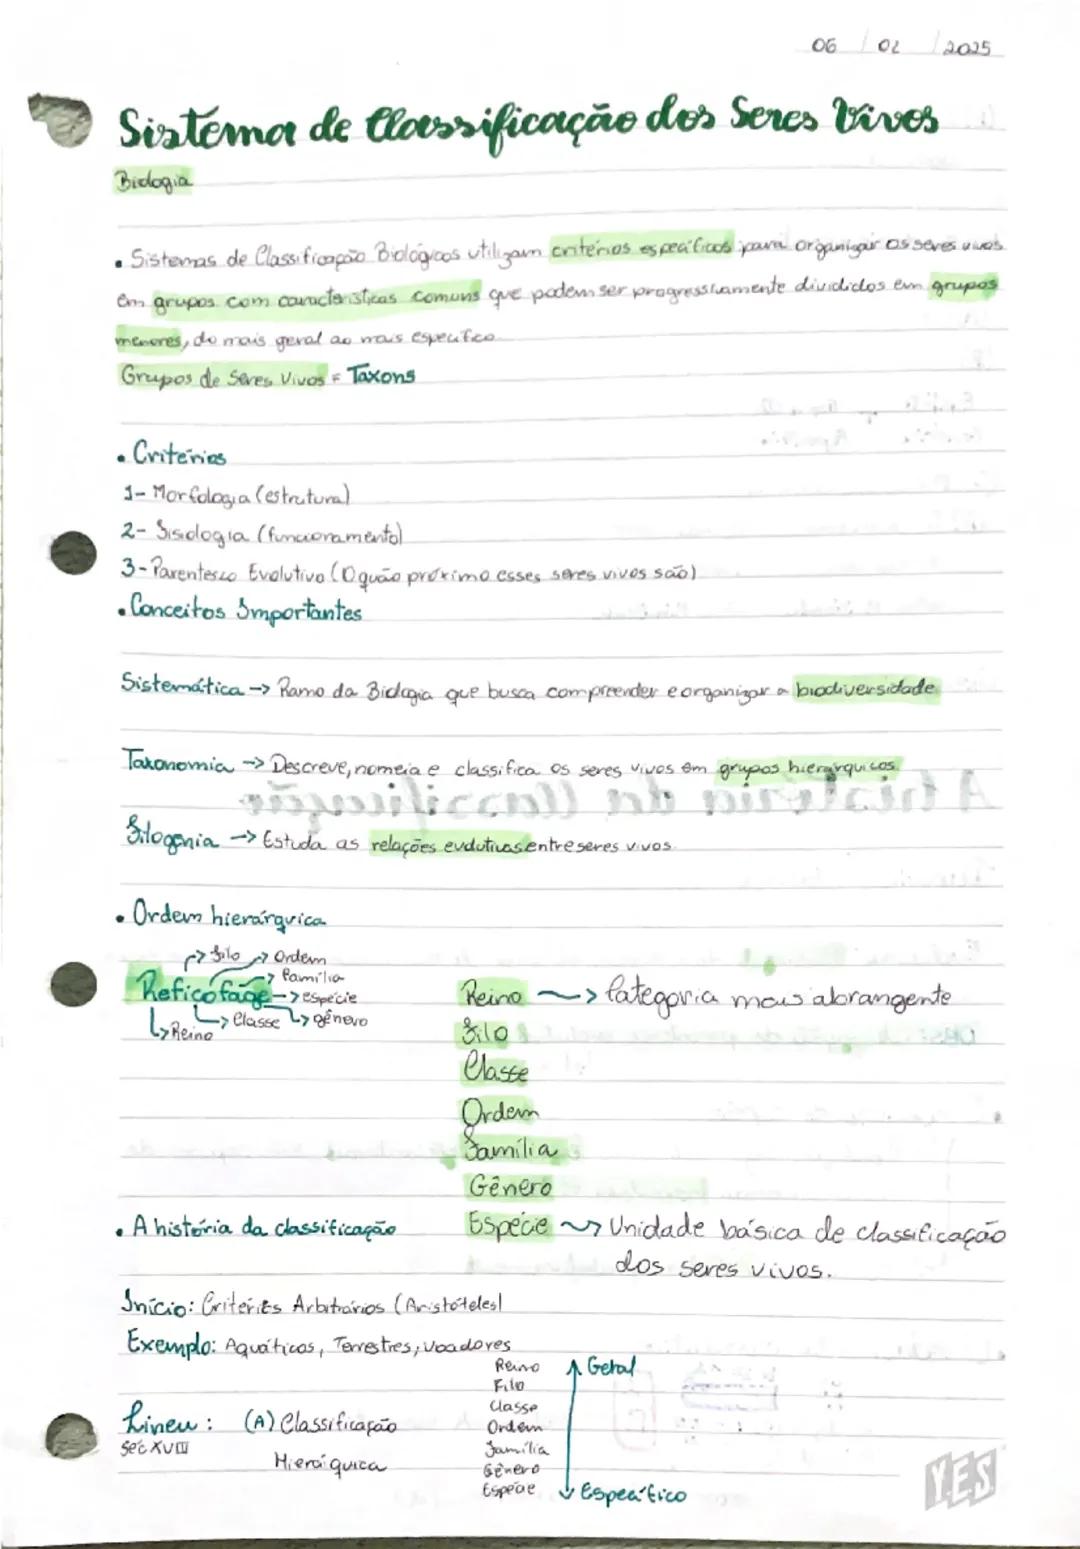 06 / 02 / 2025
Sistema de Classificação dos Seres Vivos
Biologia
• Sistemas de Classificação Biológicos utilizam critérios específicos para organizar os seres vivos
em grupos com características comuns que podem ser progressivamente divididos em grupos
menores, do mais geral ao mais específico.
Grupos de Seres Vivos = Taxons
• Critérios
1- Morfologia (estrutura)
2- Fisiologia (funcionamento)
3- Parentesco Evolutivo (O quão próximo esses seres vivos são)
• Conceitos Importantes
Sistemática -> Ramo da Biologia que busca compreender e organizar a biodiversidade
Taxonomia -> Descreve, nomeia e classifica os seres vivos em grupos hierárquicos.
Filogenia -> Estuda as relações evolutivas entre seres vivos.
• Ordem hierárquica
-> Filo -> Ordem
-> Família
Reficofage -> espécie
-> Reino -> Classe -> gênero
Reino ~> Categoria mais abrangente
Filo
Classe
Ordem
Família
Gênero
Espécie ~> Unidade básica de classificação
dos seres vivos.
• A história da classificação
Início: Critérios Arbitrários (Aristóteles)
Exemplo: Aquáticos, Terrestres, voadores
Lineu: (A) Classificação
Séc XVIII
Hierárquica
Reino
Filo
Classe
Ordem
Família
Gênero
Espécie
Geral
Específico
YES